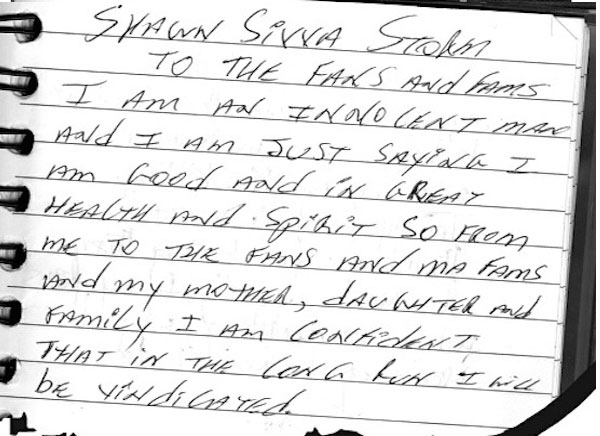 SHAWN SiVVA STORM
TO THE FANS ANd FAMS
I AM AN INNOCENT MAN
ANd I AM JUST SAYiNG I
AM GOOd ANd iN GREAT
HEALTH ANd SpiRiT SO FROM
ME TO THE FANS ANd MA FAMS
ANd MY MOTHER, dAUGHTER ANd
FAMiLY I AM CONFidENT
THAT iN THE LONG RUN I WiLL
bE ViNdiCATEd.